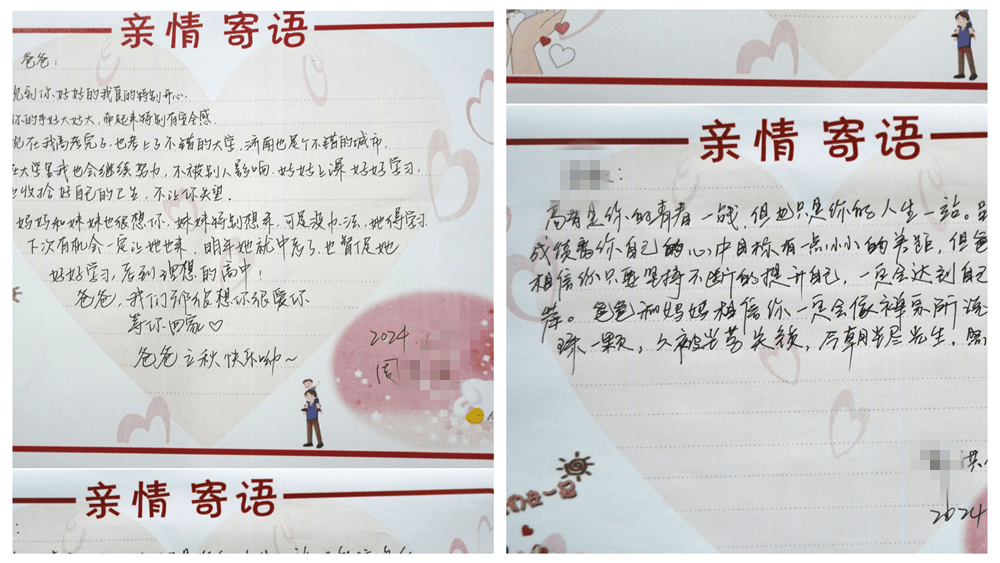 亲情 寄语
爸爸：
见到你好好的我真的特别开心.
你的手好大好大，牵起来特别有安全感.
现在我高考完了，也考上了不错的大学，济南也是个不错的城市.
在大学里我也会继续努力，不被别人影响，好好上课 好好学习，
收拾好自己的卫生，不让你失望.
妈妈和妹妹也很想你，妹妹特别想来，可是没办法，她得学习
下次有机会一定让她也来，明年她就中考了，也督促她
好好学习，考到理想的高中！
爸爸，我们都很想你很爱你
等你回家♡
爸爸立秋快乐呦～
2024.
周
亲情 寄语
亲情 寄语
：
高考是你的青春一战，但也只是你的人生一站。虽
成绩离你自己的心中目标有一点小小的差距，但爸
相信你只要坚持不断的提升自己，一定会达到自己
岸。爸爸和妈妈相信你一定会像禅宗所说
珠一颗，久被尘劳关锁，今朝尘尽光生，照
洪
2024
们在一起